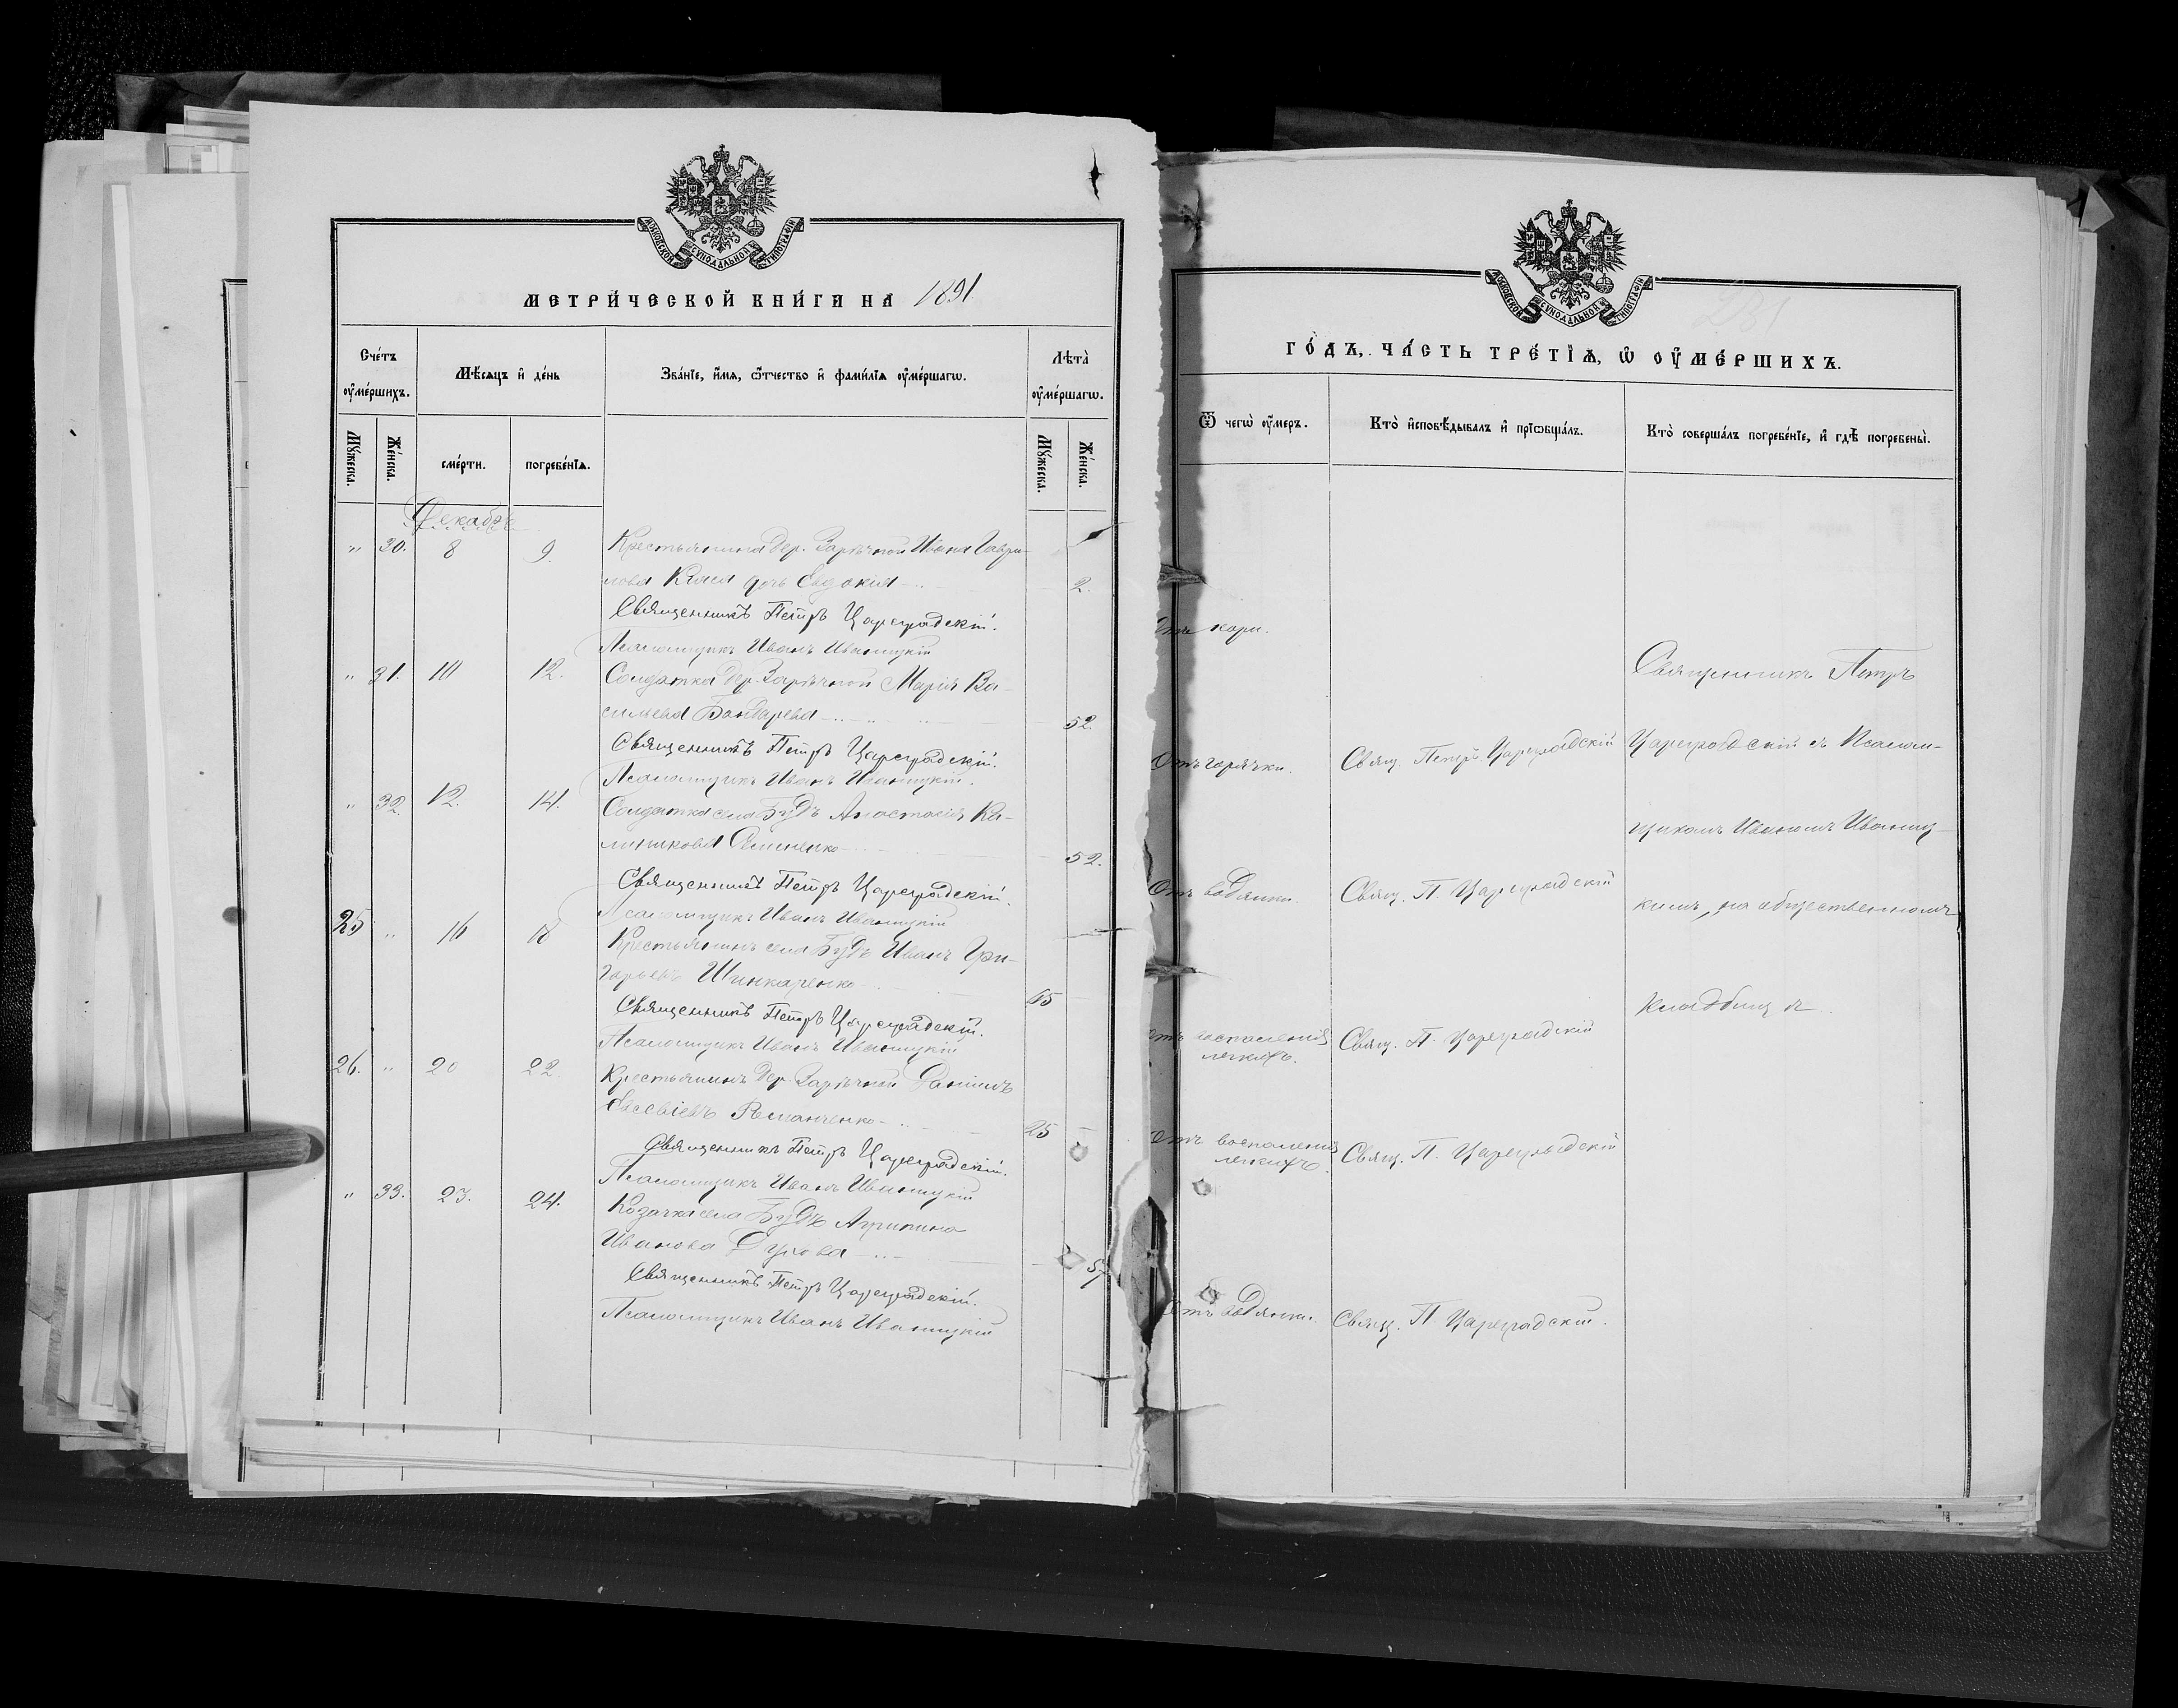 МОСКОВСКОЙ СУНОДАЛЬНОЙ ТИПОГРАФІИ
МЕТРИ́ЧЕСКОЙ КНИ́ГИ НА 1891
Сче́тъ ᲂу҆ме́ршихъ.
Мѣ́сяцъ и҆ де́нь
Зва́нїе, и҆́мя, ѻ҆́тчество и҆ фами́лїя ᲂу҆ме́ршагѡ.
Лѣта̀ ᲂу҆ме́ршагѡ.
Мꙋ́жеска.
Же́нска.
сме́рти.
погребе́нїѧ.
Мꙋ́жеска.
Же́нска.
Декабрь
" 30. 8 9. Крестьянина дер. Зарѣчной Ивана Гаври-
лова дочь Евдокія 2.
Священникъ Петръ Цареградскій.
Псаломщикъ Иванъ Иваницкій
" 31. 10 12. Солдатка дер. Зарѣчной Марія Ва-
сильева Бондарева 52.
Священникъ Петръ Цареградскій.
Псаломщикъ Иванъ Иваницкій.
" 32. 12. 14. Солдатка села Будъ Анастасія Ка-
линикова 52.
Священникъ Петръ Цареградскій.
Псаломщикъ Иванъ Иваницкій
25 " 16 18 Крестьянинъ села Будъ Иванъ Гри-
горьевъ Шинкаренко
Священникъ Петръ Цареградскій.
Псаломщикъ Иванъ Иваницкій
26. " 20 22. Крестьянинъ дер. Зарѣчной Даніилъ
Евсевіевъ Романченко 25
Священникъ Петръ Цареградскій.
Псаломщикъ Иванъ Иваницкій
" 33. 23. 24. Козачка села Будъ Агрипина
Иванова 57
Священникъ Петръ Цареградскій.
Псаломщикъ Иванъ Иваницкій
МОСКОВСКОЙ СУНОДАЛЬНОЙ ТИПОГРАФІИ
ГО́ДЪ, ЧА́СТЬ ТРЕ́ТЇѦ, Ѡ҆ ОУ҆МЕ́РШИХЪ.
Ѿ чегѡ̀ ᲂу҆́меръ.
Кто̀ и҆сповѣ́дывалъ и҆ прїѡбща́лъ.
Кто̀ соверша́лъ погребе́нїе, и҆ гдѣ̀ погребены̀.
Отъ кори.
Священникъ Петръ
Отъ горячки. Свящ. Петръ Цареградскій Цареградскій съ Псалом-
щикомъ Иваномъ Иваниц-
Отъ водянки. Свящ. П. Цареградскій
кимъ, на общественномъ
кладбищѣ
Отъ воспаленія Свящ. П. Цареградскій
легкихъ.
Отъ воспаленія Свящ. П. Цареградскій
легкихъ.
Отъ водянки. Свящ. П Цареградскій.